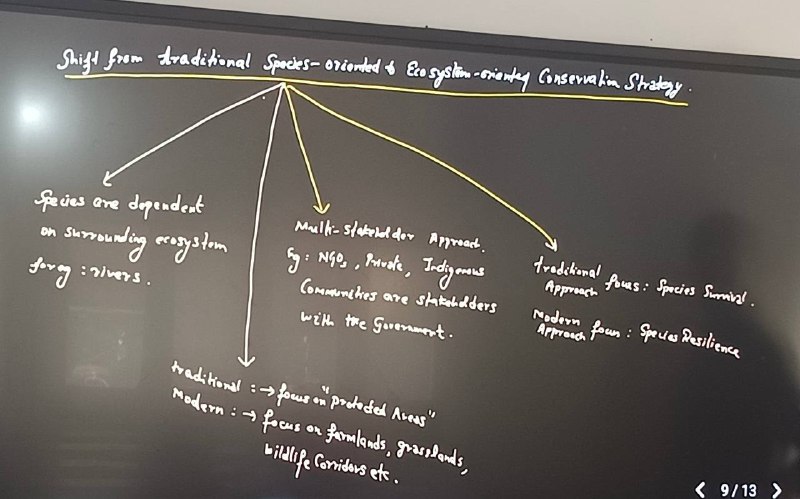 Shift from traditional Species-oriented to Ecosystem-oriented Conservation Strategy.
Species are dependent
on surrounding ecosystem
for eg : rivers.
traditional : → focus on "Protected Areas"
Modern : → focus on farmlands, grasslands,
wildlife Corridors etc.
Multi-stakeholder Approach.
Eg : NGOs, Private, Indigenous
Communities are stakeholders
with the Government.
traditional Approach focus : Species Survival.
Modern Approach focus : Species Resilience
< 9/13 >